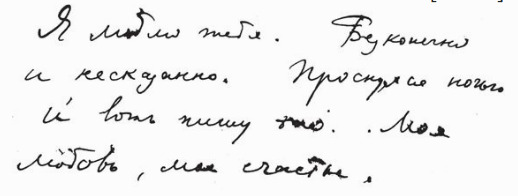 Я люблю тебя. Бесконечно
и несказанно. Проснулся ночью
и вотъ пишу это. Моя
любовь, мое счастье.